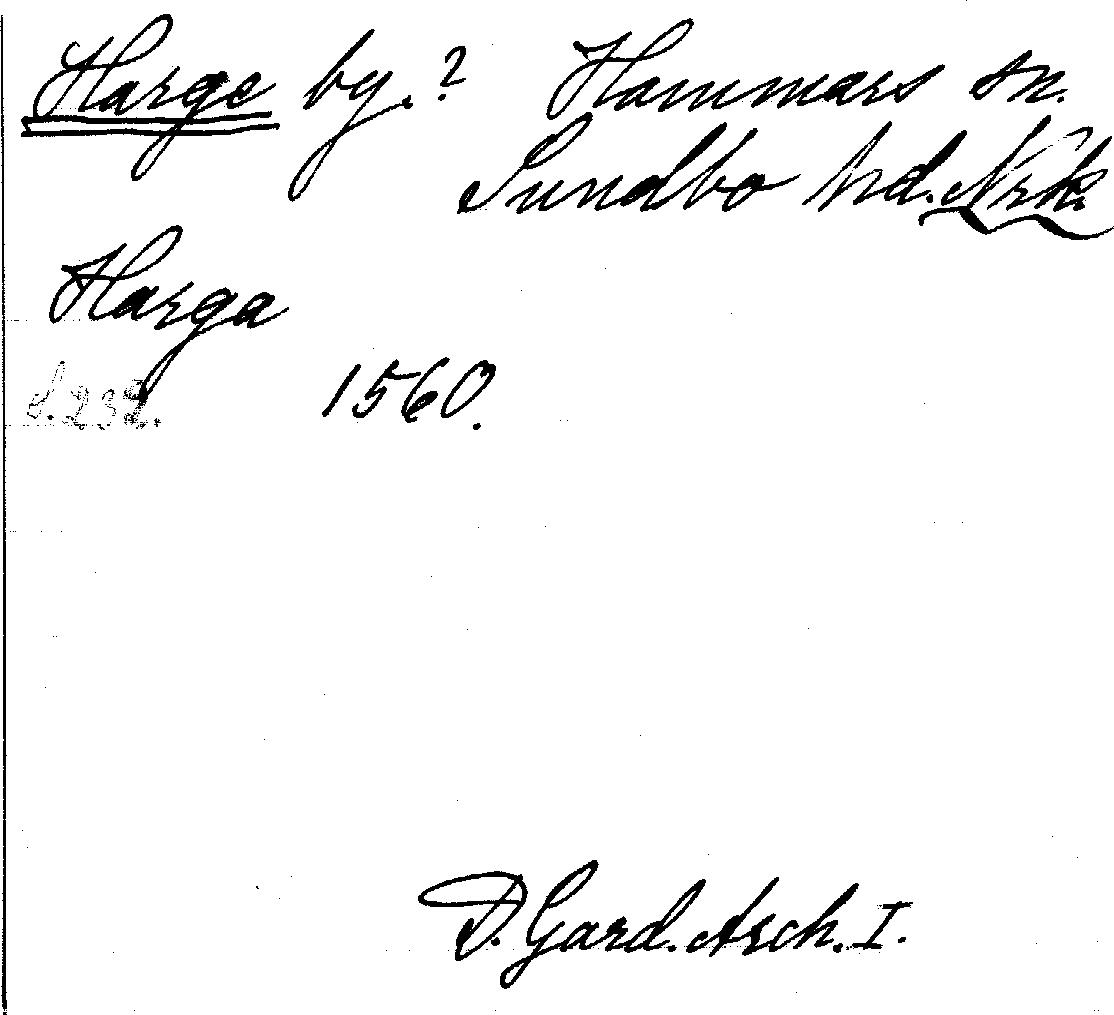 Harge by.? Hammars sn.
Sundbo hd. Nrk.
Harga
S. 232. 1560.
D. Gard. Arch. I.